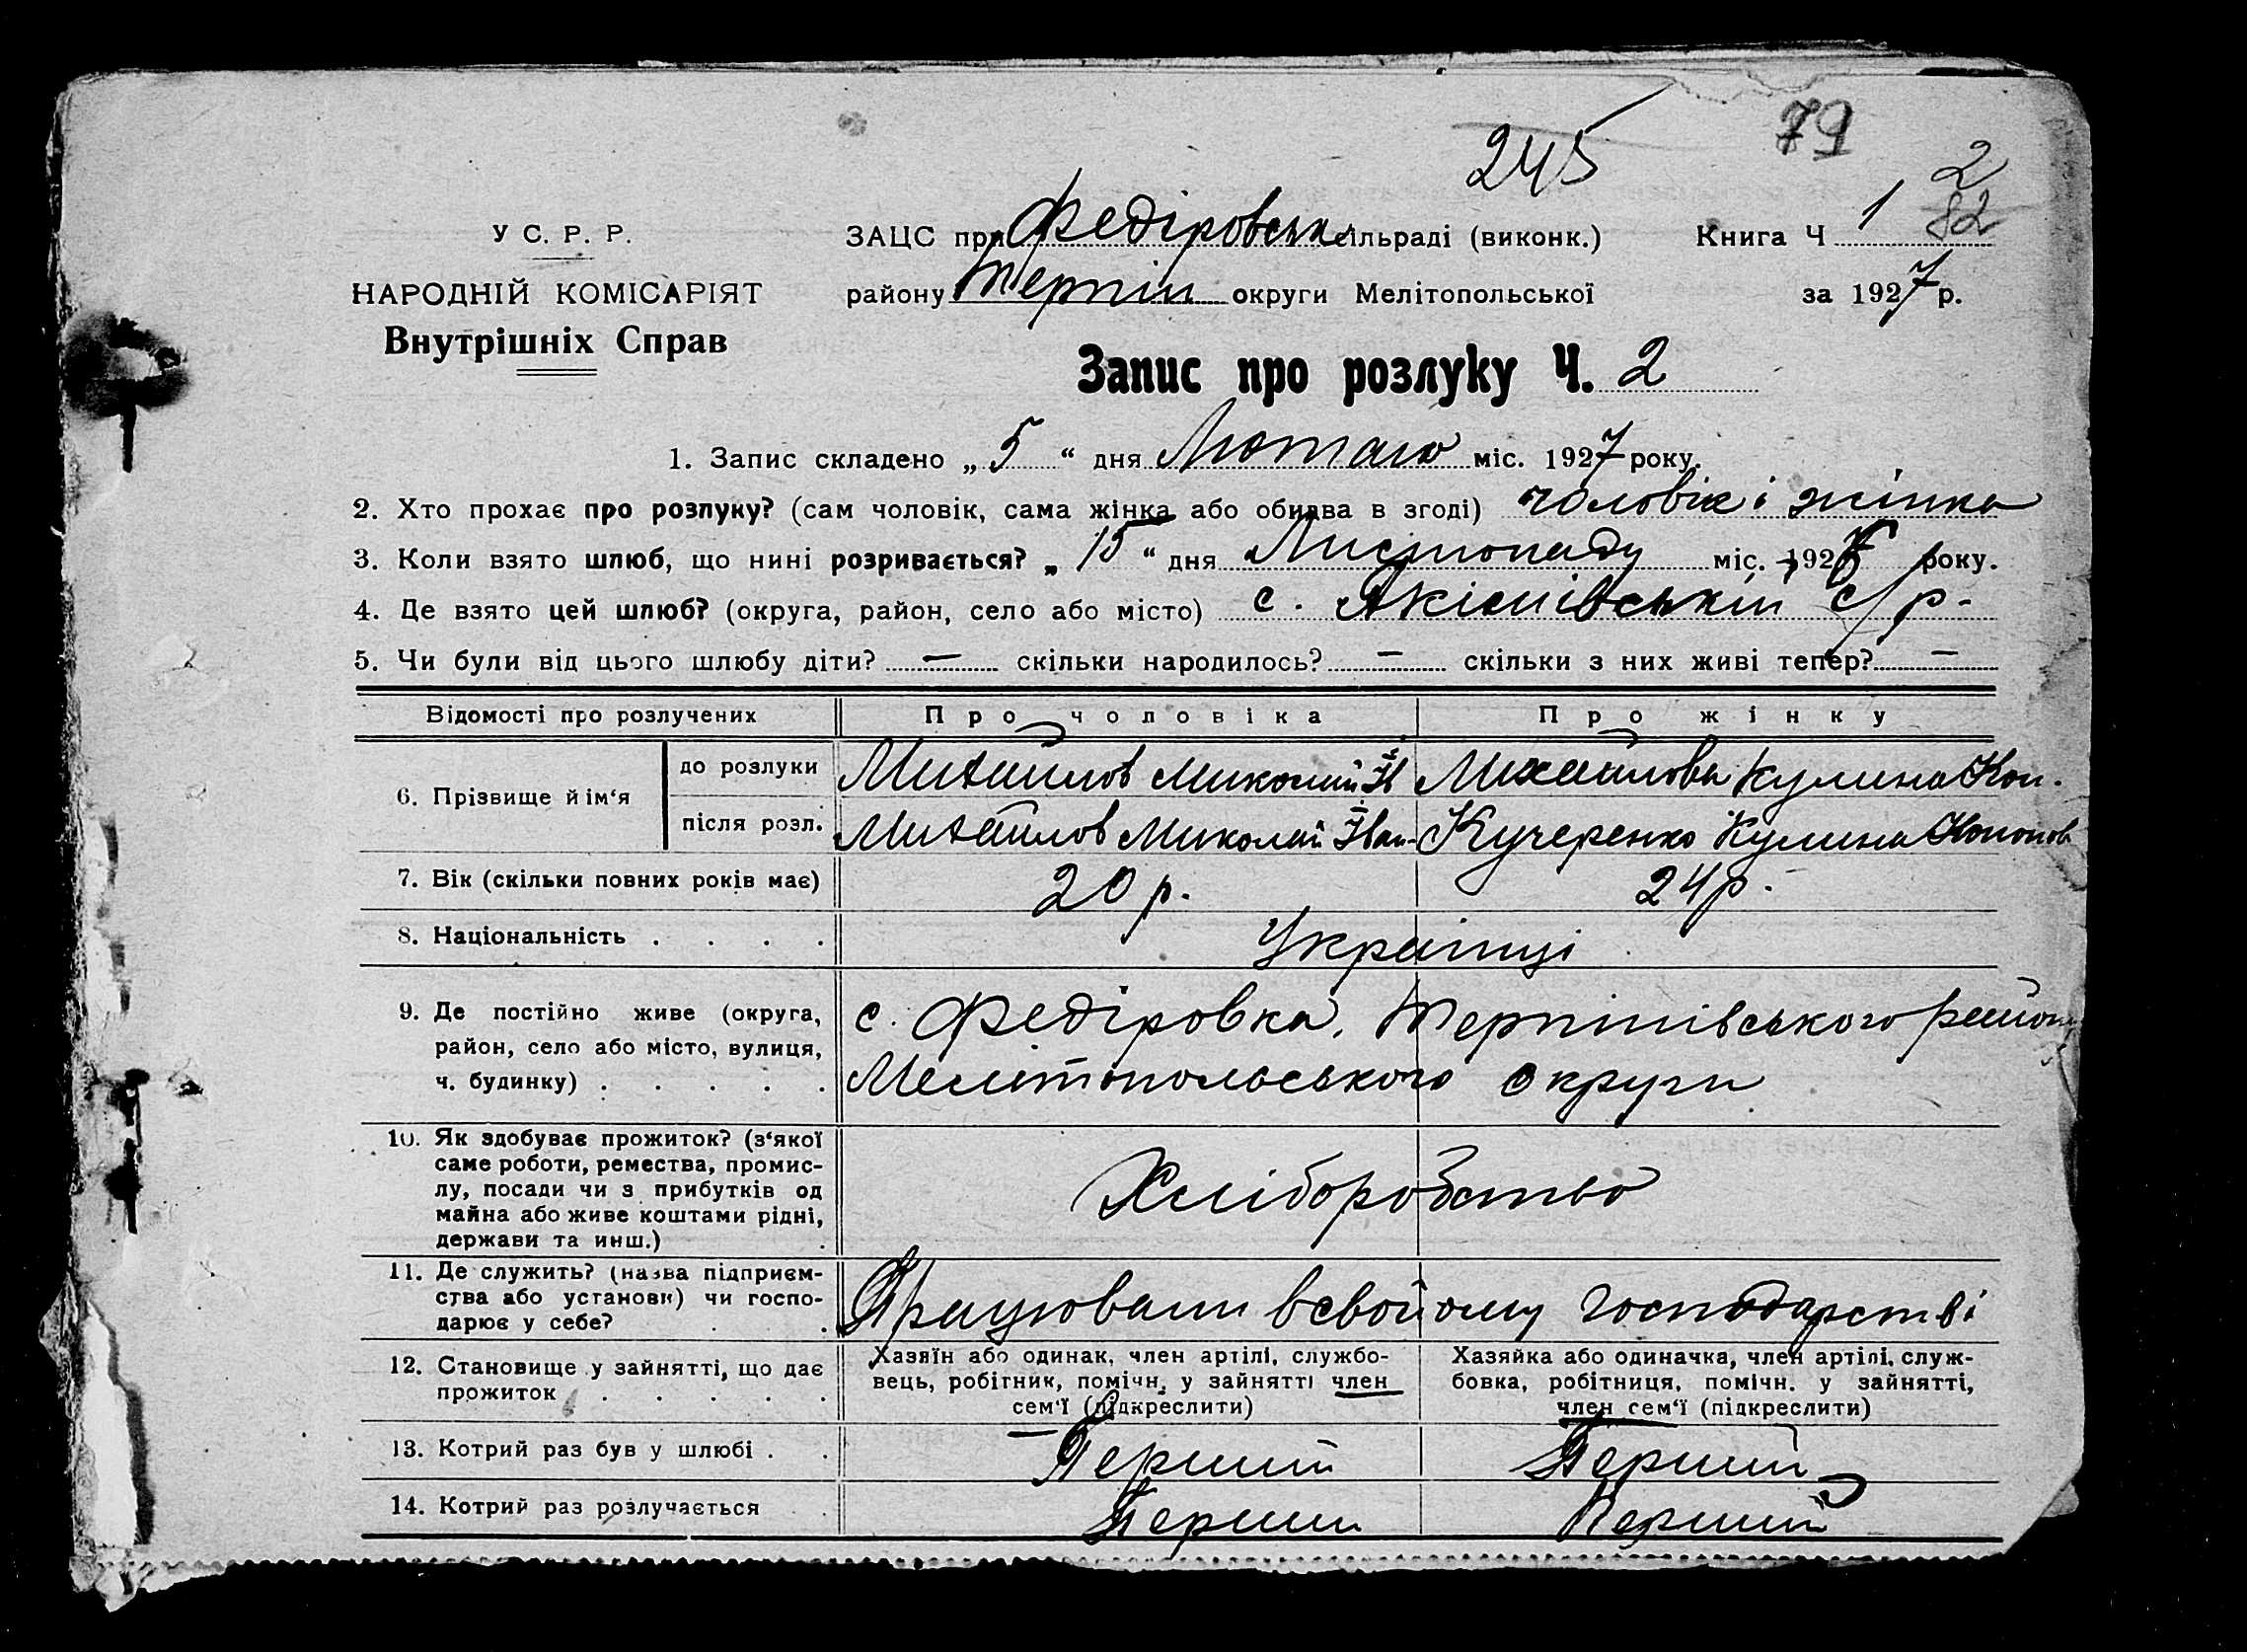 245
79
2
У С. Р. Р.
ЗАЦС при Федіровськ сільраді (виконк.) Книга Ч 1 82
НАРОДНІЙ КОМІСАРІЯТ
району Терпін округи Мелітопольської за 1927 р.
Внутрішніх Справ
Запис про розлуку Ч. 2
1. Запис складено „ 5 “ дня Лютаго міс. 1927 року.
2. Хто прохає про розлуку? (сам чоловік, сама жінка або обидва в згоді) чоловік і жінка
3. Коли взято шлюб, що нині розривається? „ 15 “ дня Листопаду міс. 192 року.
4. Де взято цей шлюб? (округа, район, село або місто) с. Якімівській с/р.
5. Чи були від цього шлюбу діти? — скільки народилось? — скільки з них живі тепер? —
Відомості про розлучених Про чоловіка Про жінку
6. Прізвище й ім‘я
до розлуки Михайлов Миколай Ів Михайлова Кулина Кон.
після розл. Михайлов Миколай Іван. Кучеренко Кулина Кононов
7. Вік (скільки повних років має) 20 р. 24 р.
8. Національність . . . . Українці
9. Де постійно живе (округа, район, село або місто, вулиця, ч. будинку) . . . . .
с. Федіровка, Терпінівського району
Мелітопольського округи
10. Як здобуває прожиток? (з‘якої
саме роботи, ремества, промис-
лу, посади чи з прибутків од
майна або живе коштами рідні,
держави та инш.)
Хліборобство
11. Де служить? (назва підприєм-
ства або установи) чи госпо-
дарює у себе?
Працювали всвойому господарстві
12. Становище у зайнятті, що дає
прожиток . . . . .
Хазяїн або одинак, член артілі, службо-
вець, робітник, помічн. у зайнятті член
сем‘ї (підкреслити)
Хазяйка або одиначка, член артілі, служ-
бовка, робітниця, помічн. у зайнятті,
член сем‘ї (підкреслити)
13. Котрий раз був у шлюбі . . Перший Перший
14. Котрий раз розлучається Перший Перший